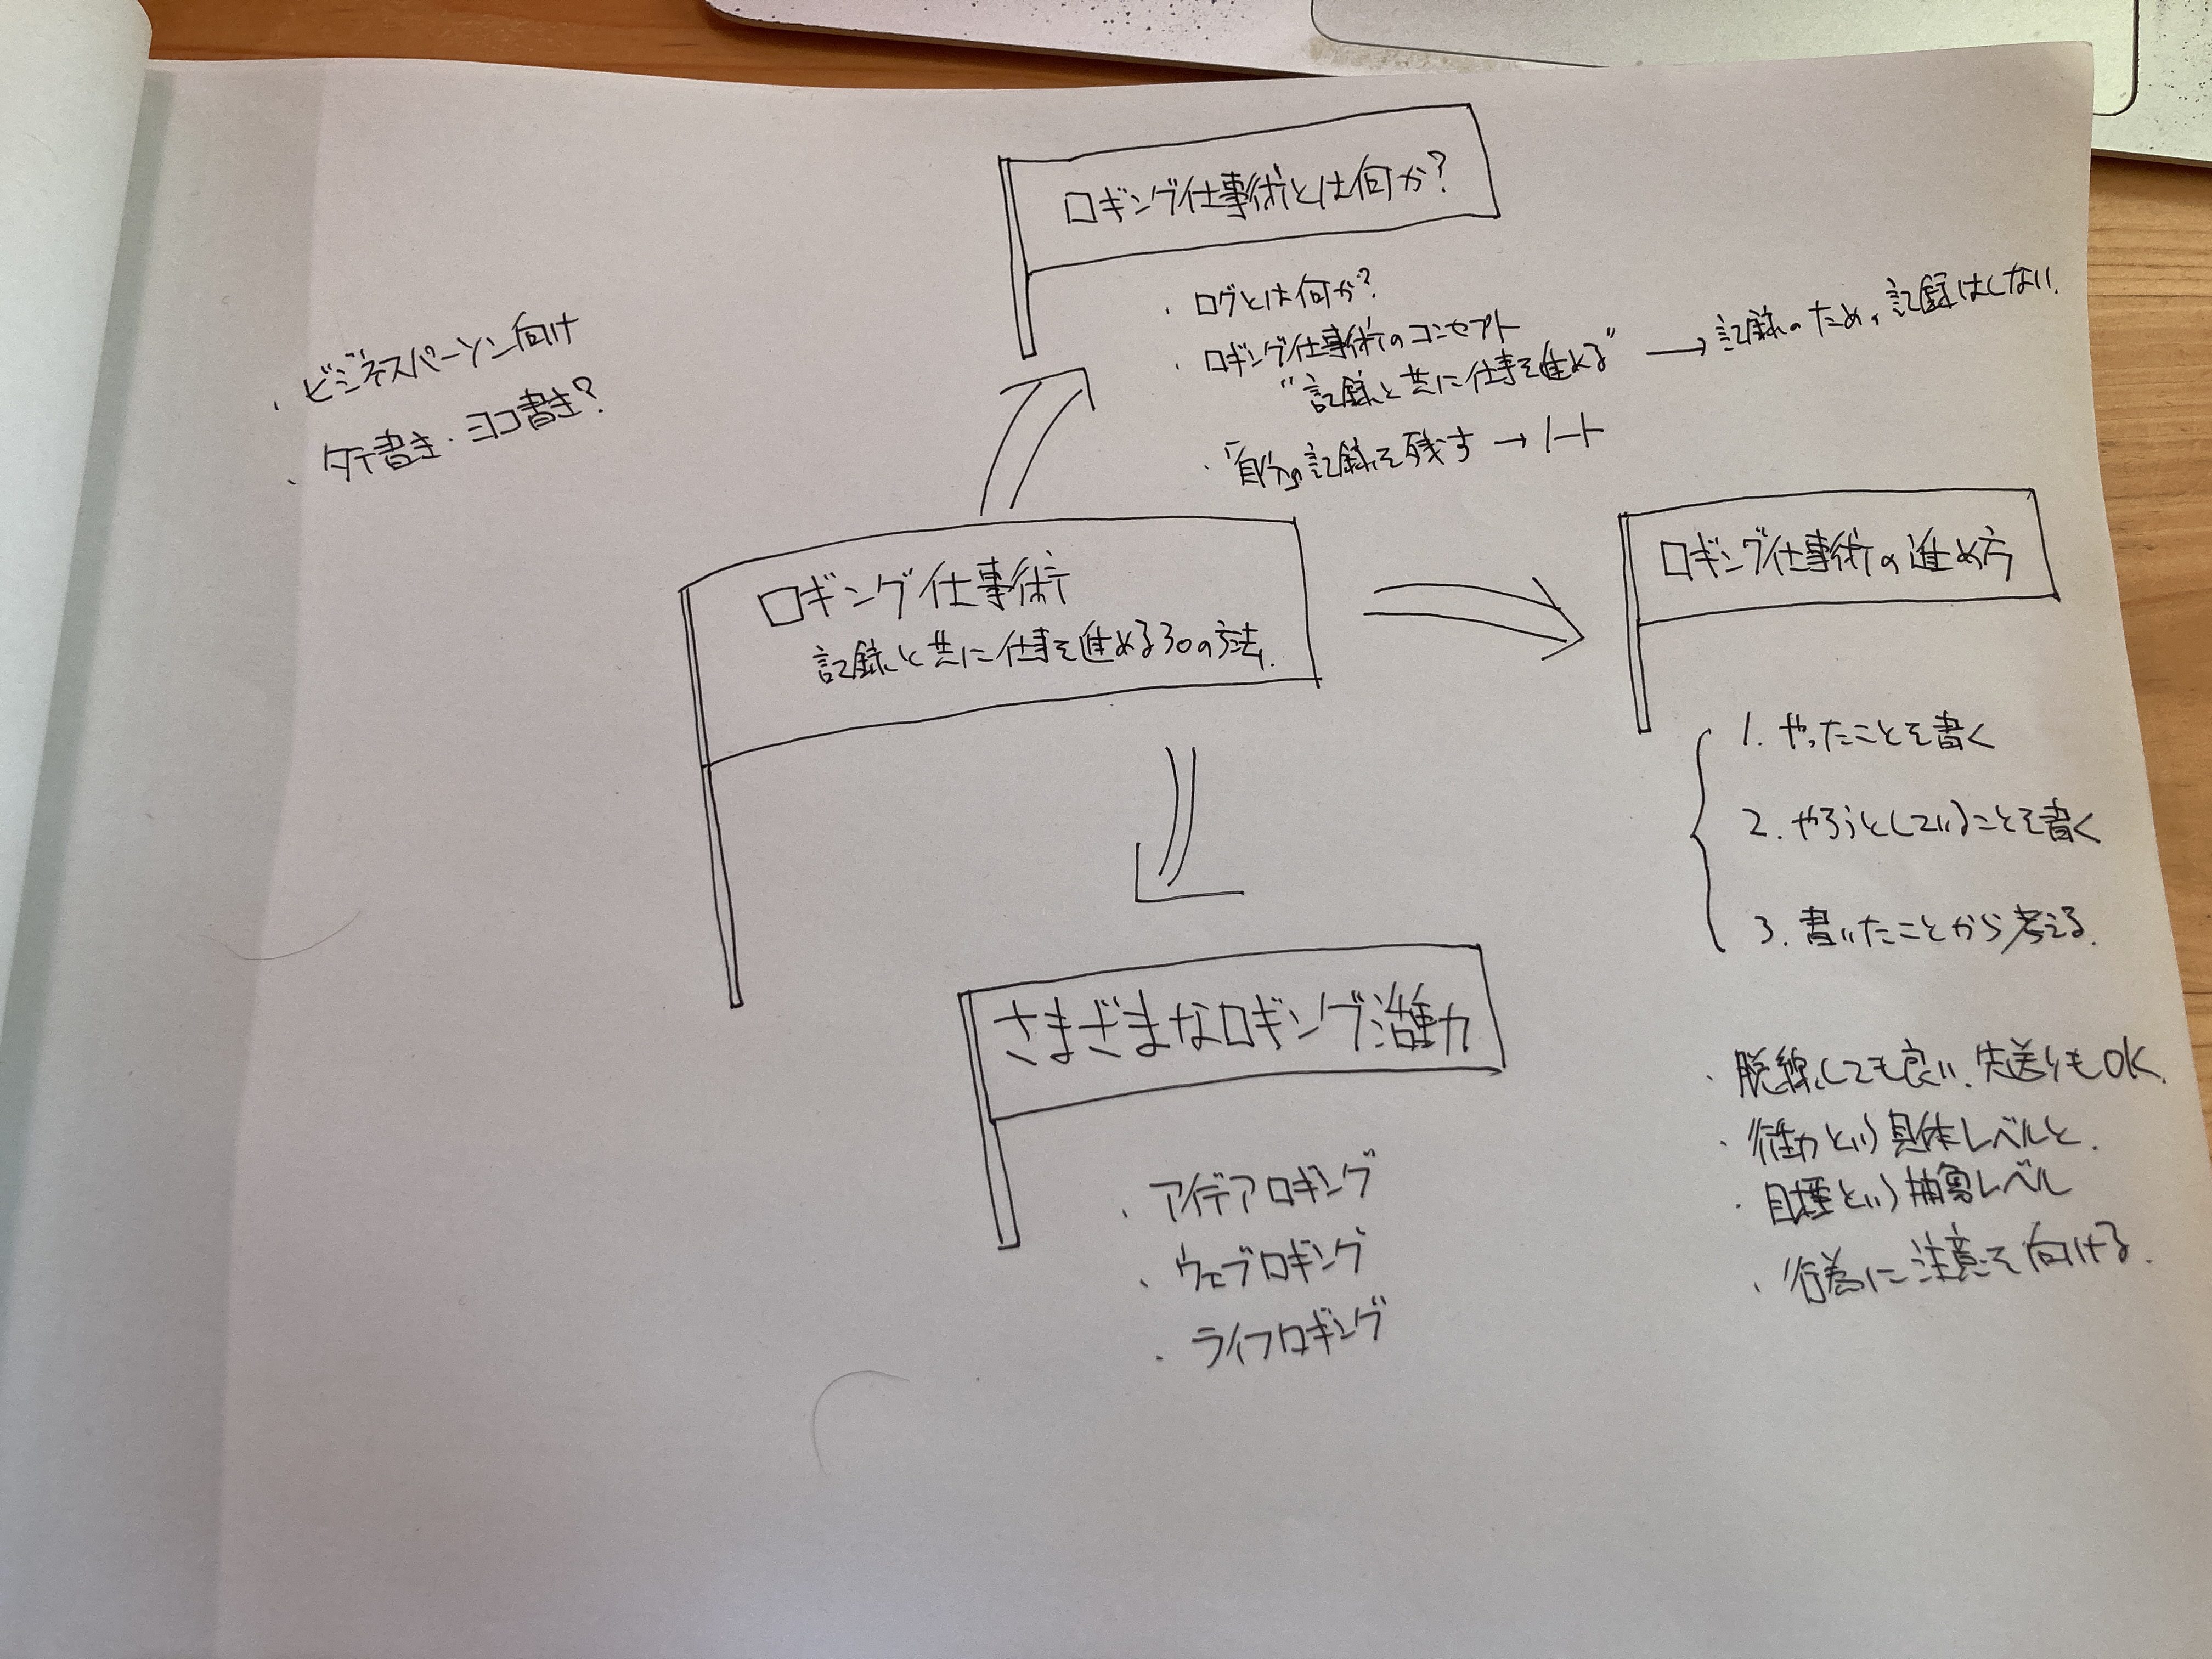 ロギング仕事術とは何か?
・ログとは何か?
・ロギング仕事術のコンセプト
"記録と共に仕事を進める" → 記録のための記録はしない.
・自分の記録を残す → ノート
・ビジネスパーソン向け
・タテ書き・ヨコ書き?
ロギング仕事術
記録と共に仕事を進める30の方法.
ロギング仕事術の進め方
1. やったことを書く
2. やろうとしていることを書く
3. 書いたことから考える.
・脱線しても良い. 先送りもOK.
・行動という具体レベルと.
・目標という抽象レベル
・行為に注意を向ける.
さまざまなロギング活動
・アイデアロギング
・ウェブロギング
・ライフロギング